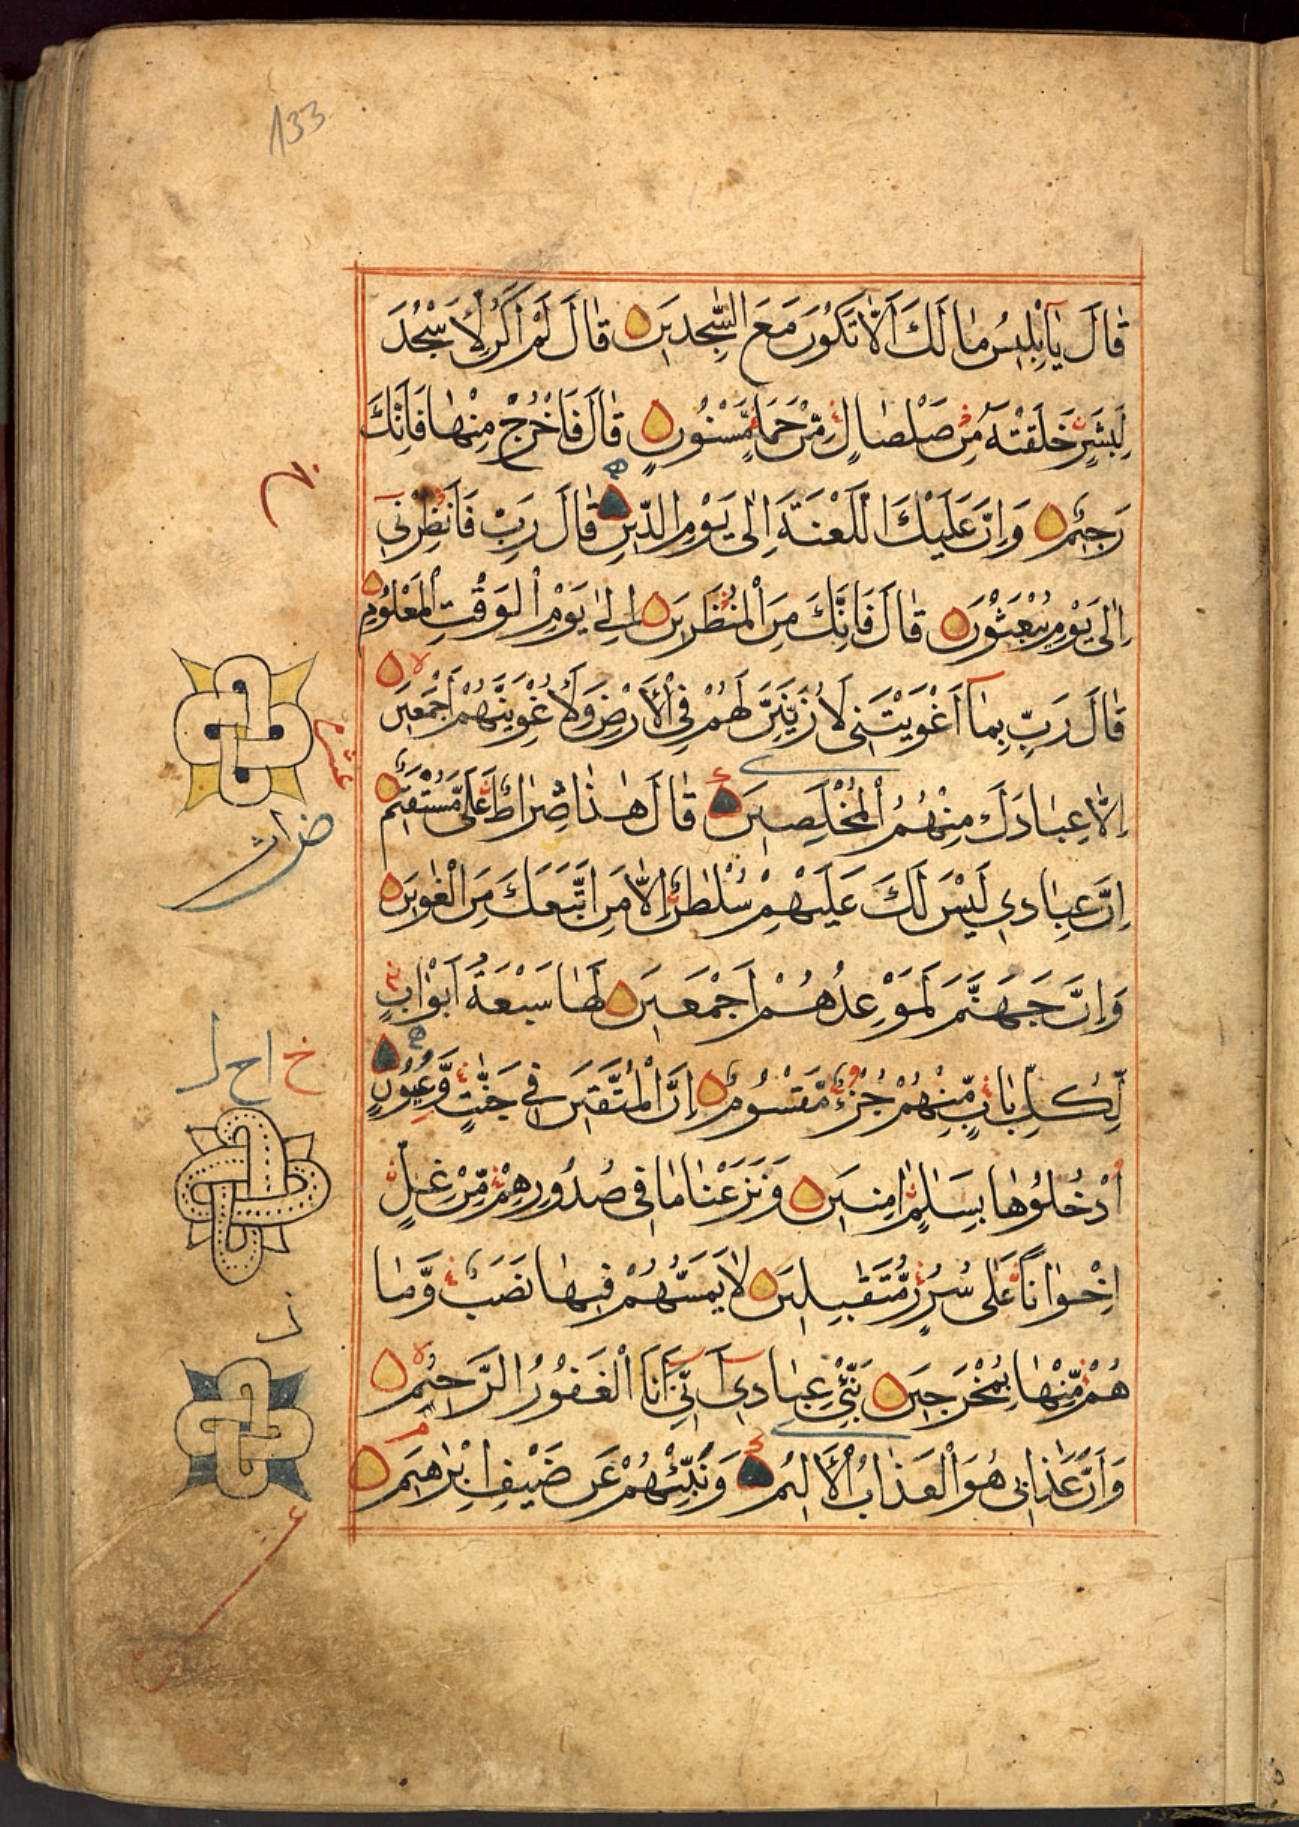 133
قَالَ يَا إِبْلِيسُ مَا لَكَ أَلَّا تَكُونَ مَعَ السّٰجِدِينَ قَالَ لَمْ أَكُنْ لِأَسْجُدَ
لِبَشَرٍ خَلَقْتَهُ مِنْ صَلْصَالٍ مِّنْ حَمَإٍ مَّسْنُونٍ قَالَ فَاخْرُجْ مِنْهَا فَإِنَّكَ
رَجِيمٌ وَإِنَّ عَلَيْكَ اللَّعْنَةَ إِلٰى يَوْمِ الدِّينِ قَالَ رَبِّ فَأَنْظِرْنِي
إِلٰى يَوْمِ يُبْعَثُونَ قَالَ فَإِنَّكَ مِنَ الْمُنْظَرِينَ إِلٰى يَوْمِ الْوَقْتِ الْمَعْلُومِ
قَالَ رَبِّ بِمَا أَغْوَيْتَنِي لَأُزَيِّنَنَّ لَهُمْ فِي الْأَرْضِ وَلَأُغْوِيَنَّهُمْ أَجْمَعِينَ
إِلَّا عِبَادَكَ مِنْهُمُ الْمُخْلَصِينَ قَالَ هٰذَا صِرَاطٌ عَلَيَّ مُسْتَقِيمٌ
إِنَّ عِبَادِي لَيْسَ لَكَ عَلَيْهِمْ سُلْطٰنٌ إِلَّا مَنِ اتَّبَعَكَ مِنَ الْغٰوِينَ
وَإِنَّ جَهَنَّمَ لَمَوْعِدُهُمْ أَجْمَعِينَ لَهَا سَبْعَةُ أَبْوَابٍ
لِّكُلِّ بَابٍ مِّنْهُمْ جُزْءٌ مَّقْسُومٌ إِنَّ الْمُتَّقِينَ فِي جَنّٰتٍ وَّعُيُونٍ
اُدْخُلُوهَا بِسَلٰمٍ اٰمِنِينَ وَنَزَعْنَا مَا فِي صُدُورِهِمْ مِّنْ غِلٍّ
إِخْوَانًا عَلٰى سُرُرٍ مُّتَقٰبِلِينَ لَا يَمَسُّهُمْ فِيهَا نَصَبٌ وَّمَا
هُمْ مِّنْهَا بِمُخْرَجِينَ نَبِّئْ عِبَادِي أَنِّي أَنَا الْغَفُورُ الرَّحِيمُ
وَأَنَّ عَذَابِي هُوَ الْعَذَابُ الْأَلِيمُ وَنَبِّئْهُمْ عَنْ ضَيْفِ إِبْرٰهِيمَ
عشر